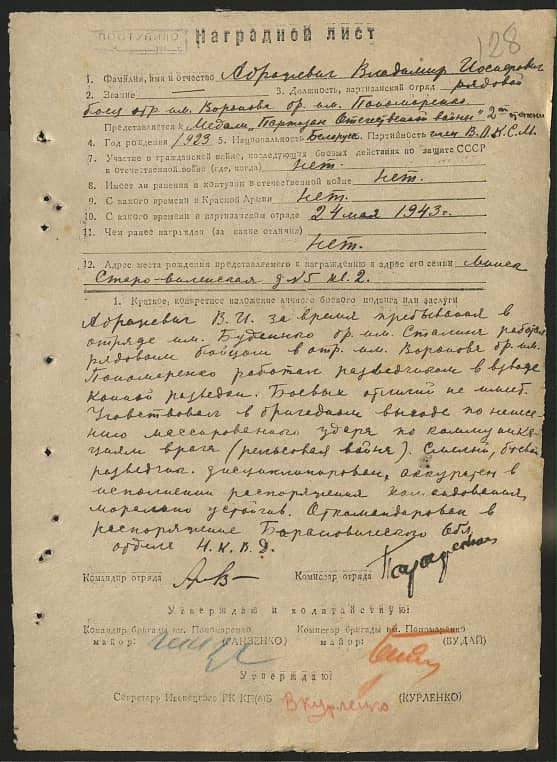 ПОСТУПИЛО
128
Наградной лист
1. Фамилия, имя и отчество Абрамевич Владимир Иосифович
2. Звание — 3. Должность, партизанский отряд рядовой
боец отр. им. Воронова бр. им. Пономаренко
Представляется к Медали „Партизан Отечественной войны" 2ой степени
4. Год рождения 1923 5. Национальность Белорус Партийность член В.Л.К.С.М.
7. Участие в гражданской войне, последующих боевых действиях по защите СССР
и Отечественной войне (где, когда) нет.
8. Имеет ли ранения и контузии в отечественной войне нет.
9. С какого времени в Красной Армии нет.
10. С какого времени в партизанском отряде 24 мая 1943 г.
11. Чем ранее награжден (за какие отличия)
нет.
12. Адрес места рождения представляемого к награждению и адрес его семьи Минск
Старо-виленская д №5 кв. 2.
1. Краткое, конкретное изложение личного боевого подвига или заслуги
В.И. за время пребывания в
отряде им. Буденного бр. им. Сталина работал
рядовым бойцом в отр. им. Воронова бр. им.
Пономаренко работал разведчиком в взводе
конной разведки. Боевых отличий не имеет.
Учавствовал в бригадном выходе по нанесе-
нию массированного удара по коммуника-
циям врага (рельсовая война). Смелый, боевой
разведчик. дисциплинирован, аккуратен в
исполнении распоряжения командования,
морально устойчив. Откомандирован в
распоряжение Барановического Обл.
отдела Н.К.В.Д.
Командир отряда Комиссар отряда
Утверждаю и ходатайствую:
Командир бригады им. Пономаренко Комиссар бригады им. Пономаренко
майор: (ГАНЗЕНКО) майор: (БУДАЙ)
Утверждаю:
Секретарь Ивенецкого РК КП(б)Б В Курленко (КУРЛЕНКО)